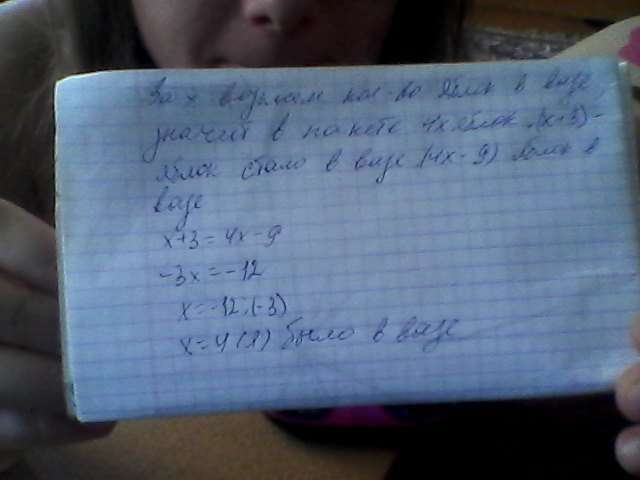 За x возьмем кол-во яблок в вазе,
значит в пакете 4x яблок. (x+3)-
яблок стало в вазе (4x-9) яблок в
вазе
x+3=4x-9
-3x=-12
x=-12:(-3)
x=4(я) было в вазе